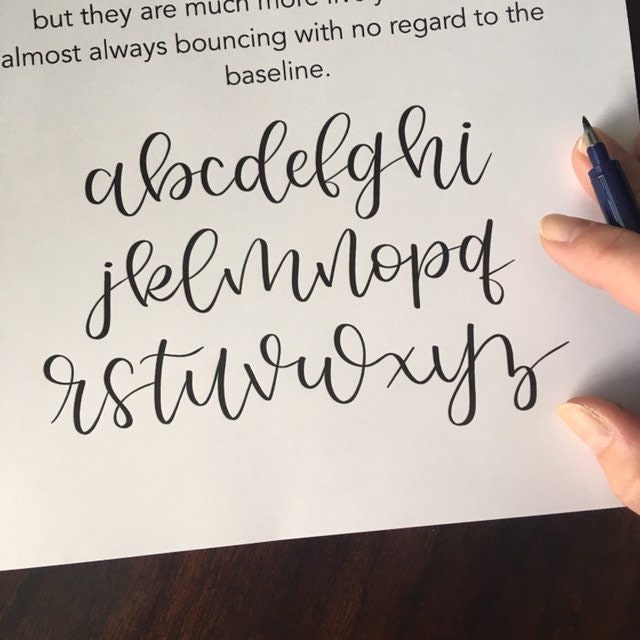 but they are much more
almost always bouncing with no regard to the
baseline.
abcdefghi
jklmnopq
rstuvwxyz